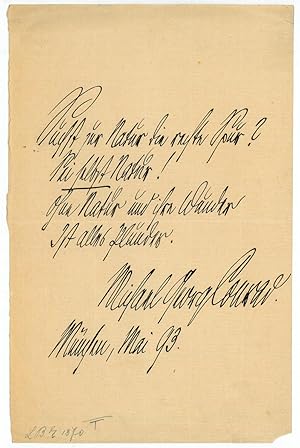 Suchst zur Natur die rechte Spur?
Sei selbst Natur!
Ohne Natur und ihre Wunder
Ist alles Plunder.
Michael Georg Conrad.
München, Mai 93.
1870 I